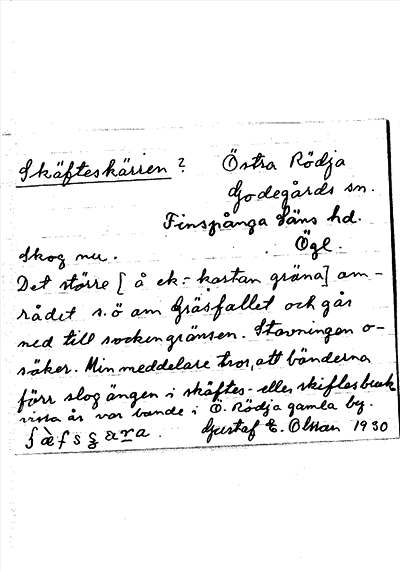 Skäfteskärren ? Östra Rödja
Godegårds sn.
Finspånga läns hd.
Skog nu. Ögl.
Det större [ å ek:- kartan gräna ] om-
rådet s.ö om Gräsfallet och går
ned till sockengränsen. Stavningen o-
säker. Min meddelare tror, att bönderna
förr slog ängen i skäftes- eller skiftesbruk
vissa år var bonde i Ö. Rödja gamla by.
Gustaf E. Olsson 1930